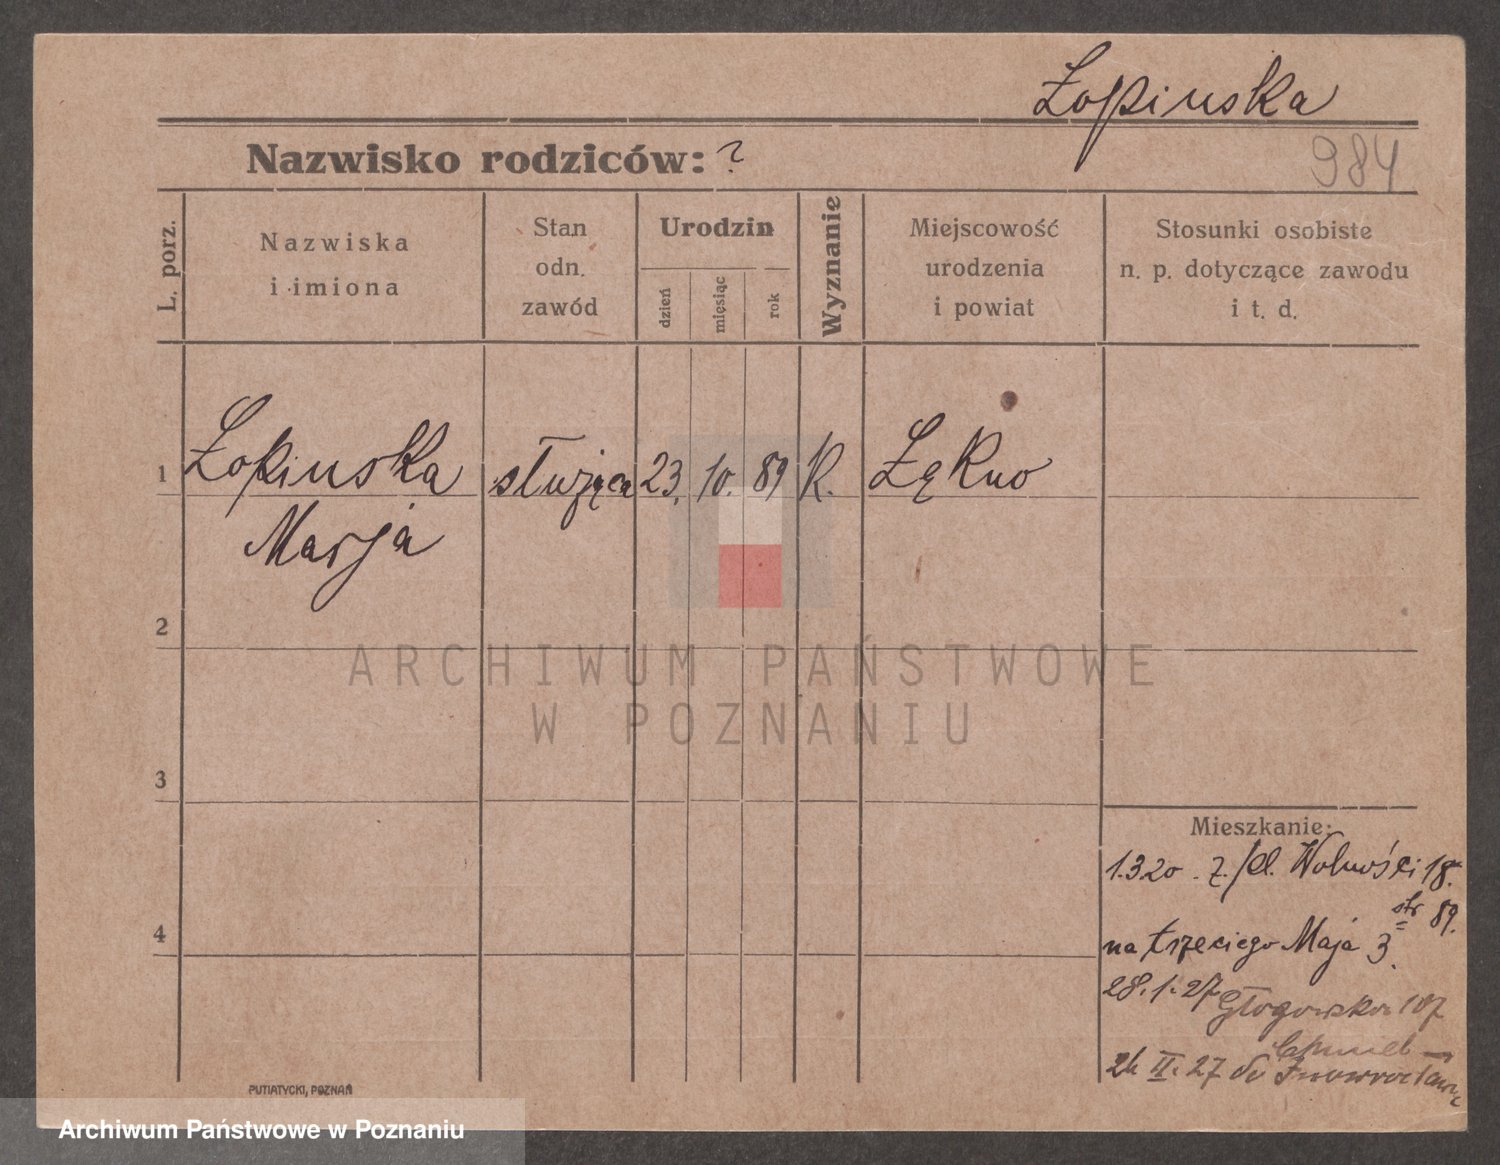 Łopinska
Nazwisko rodziców: ?
984
L. porz.
Nazwiska
i imiona
Stan
odn.
zawód
Urodzin
dzień
miesiąc
rok
Wyznanie
Miejscowość
urodzenia
i powiat
Stosunki osobiste
n. p. dotyczące zawodu
i t. d.
1
Łopinska
Marja
służąca
23.
10.
89
K.
Łękno
2
ARCHIWUM PAŃSTWOWE
W POZNANIU
3
4
Mieszkanie:
1.3.20 . z. pl. Wolności 18.
str 89.
na trzeciego Maja 3.
28.1.27 Głogowska 107
24 II. 27 do Inowrocławia
PUTIATYCKI, POZNAŃ
Archiwum Państwowe w Poznaniu